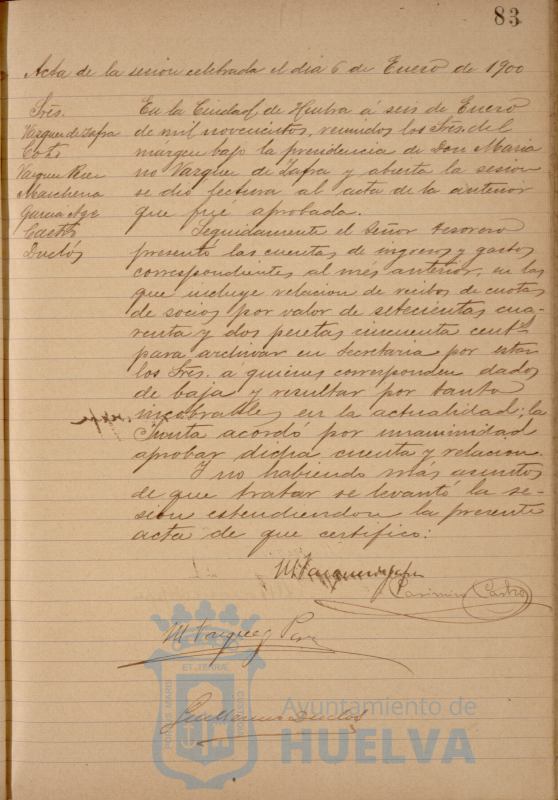 83
Acta de la sesion celebrada el dia 6 de Enero de 1900
Sres.
Vazquez de Zafra
Coto
Vazquez Perez
Marchena
Garcia
Castro
Duclós
En la Ciudad de Huelva á seis de Enero
de mil novecientos, reunidos los Sres. del
márgen bajo la presidencia de Don Maria
no Vazquez de Zafra y abierta la sesion
se dió lectura al acta de la anterior
que fué aprobada.
Seguidamente el Señor Tesorero
presentó las cuentas de ingresos y gastos
correspondientes al mes anterior, en las
que incluye relacion de recibos de cuotas
de socios por valor de setecientas cua-
renta y dos pesetas cincuenta cents
para archivar en Secretaria por estar
los Sres. á quienes corresponden dados
de baja y resultar por tanto
incobrables en la actualidad; la
Junta acordó por unanimidad
aprobar dicha cuenta y relacion.
Y no habiendo más asuntos
de que tratar se levantó la se-
sion estendiendon la presente
acta de que certifico:
M. Vazquez de Zafra
Casimiro Castro
M Vazquez Perez
Guillermo Duclós
PORTUS MARIS
ET TERRAE
CUSTODIA
Ayuntamiento de
HUELVA